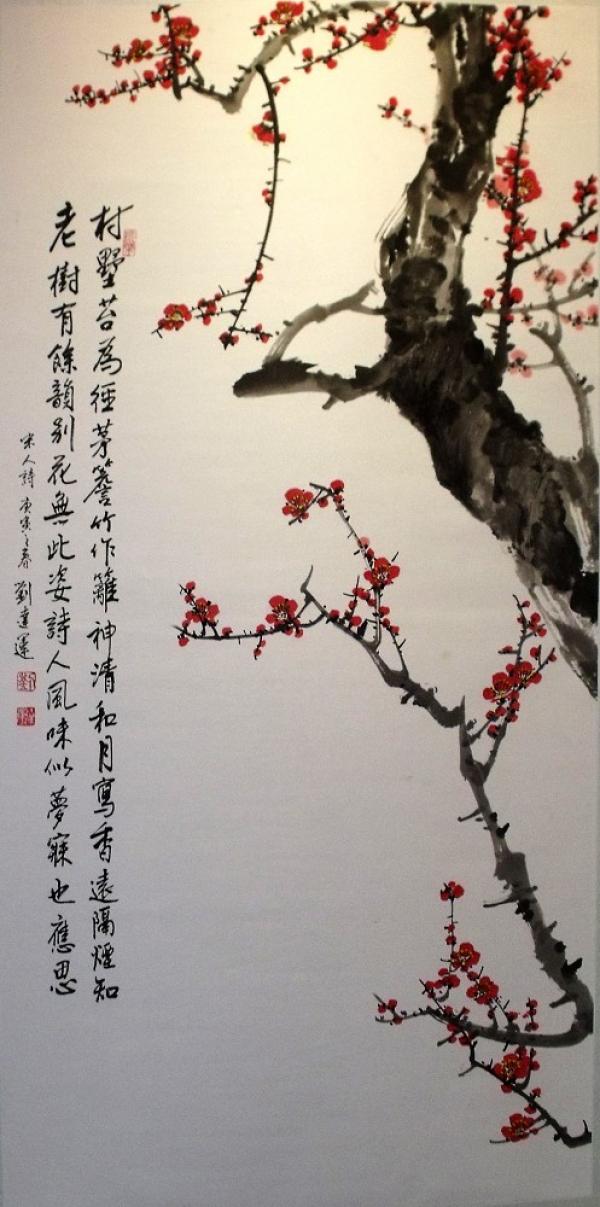 村墅苔為徑茅簷竹作籬神清和月寫香遠隔煙知
老樹有餘韻別花無此姿詩人風味似夢寐也應思
宋人詩庚寅之春劉達運